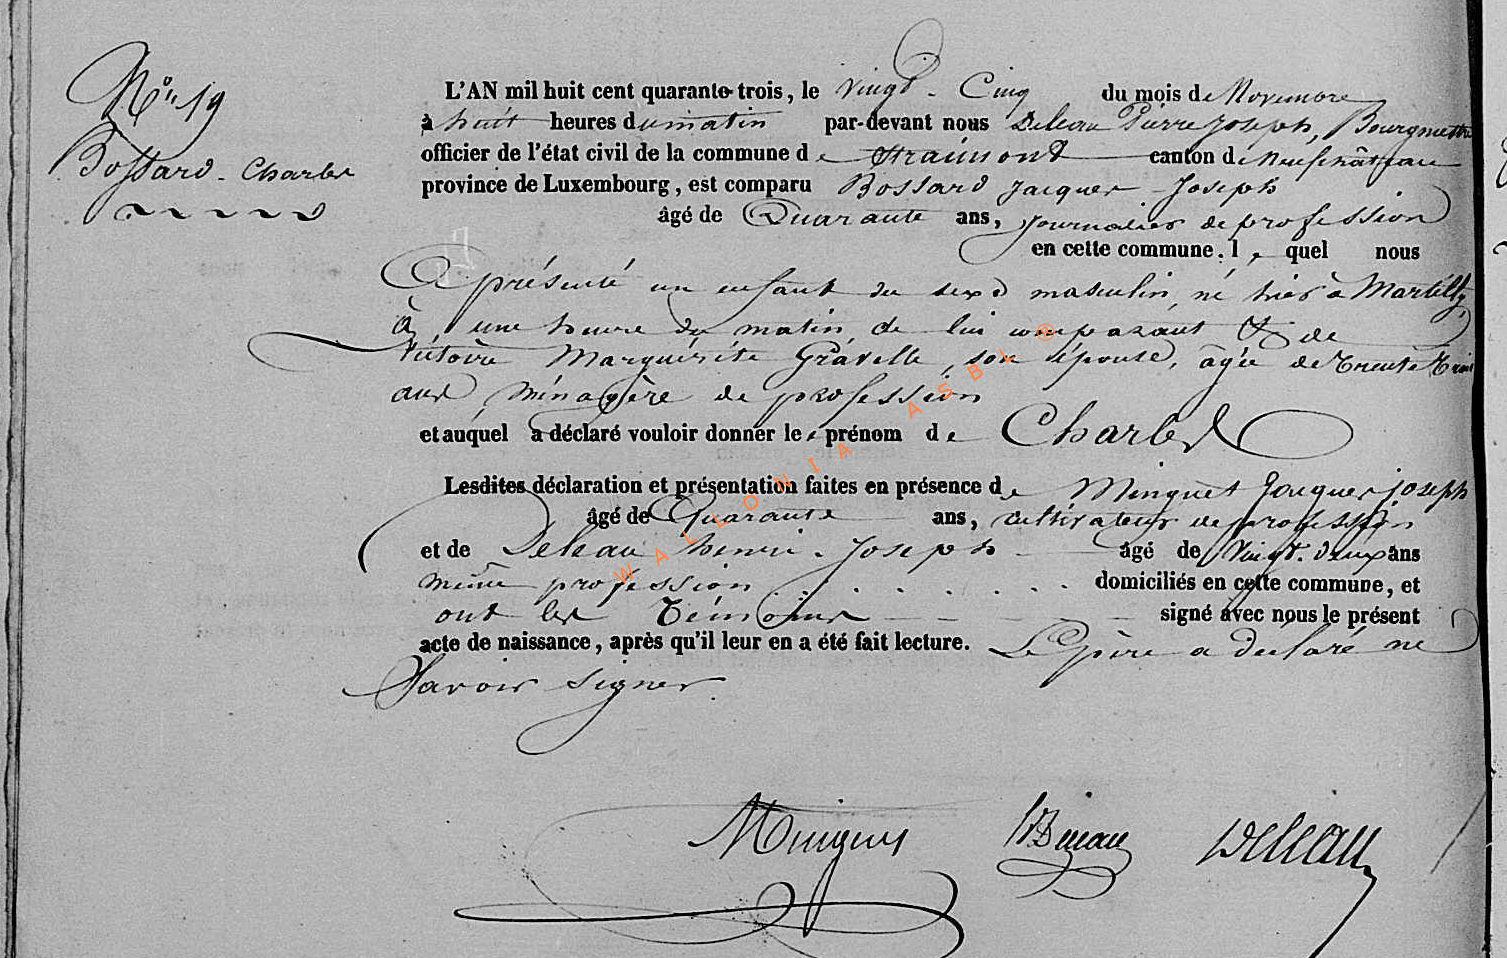 No 19
Bossard - Charles
L'AN mil huit cent quarante-trois, le vingt-Cinq du mois de Novembre
à huit heures du matin par-devant nous Deleau Pierre Joseph, Bourgmestre
officier de l'état civil de la commune de Straimont canton de Neufchâteau
province de Luxembourg, est comparu Bossard Jacques-Joseph
âgé de Quarante ans, journalier de profession
en cette commune, lequel nous
A présenté un enfant du sexe masculin, né hier à Martilly,
à une heure du matin de lui comparant & de
Victoire Marguérite Gravelle, son épouse, âgée de trente trois
ans, ménagère de profession
et auquel a déclaré vouloir donner le prénom de Charles
Lesdites déclaration et présentation faites en présence de Minguet Jacques joseph
âgé de Quarante ans, cultivateur de profession
et de Deleau henri-Joseph âgé de Vingt-deux ans
même profession domiciliés en cette commune, et
ont les témoins signé avec nous le présent
acte de naissance, après qu'il leur en a été fait lecture. Le père a déclaré ne
Savoir signer.
Deleau
WALLONIA ASBL ®